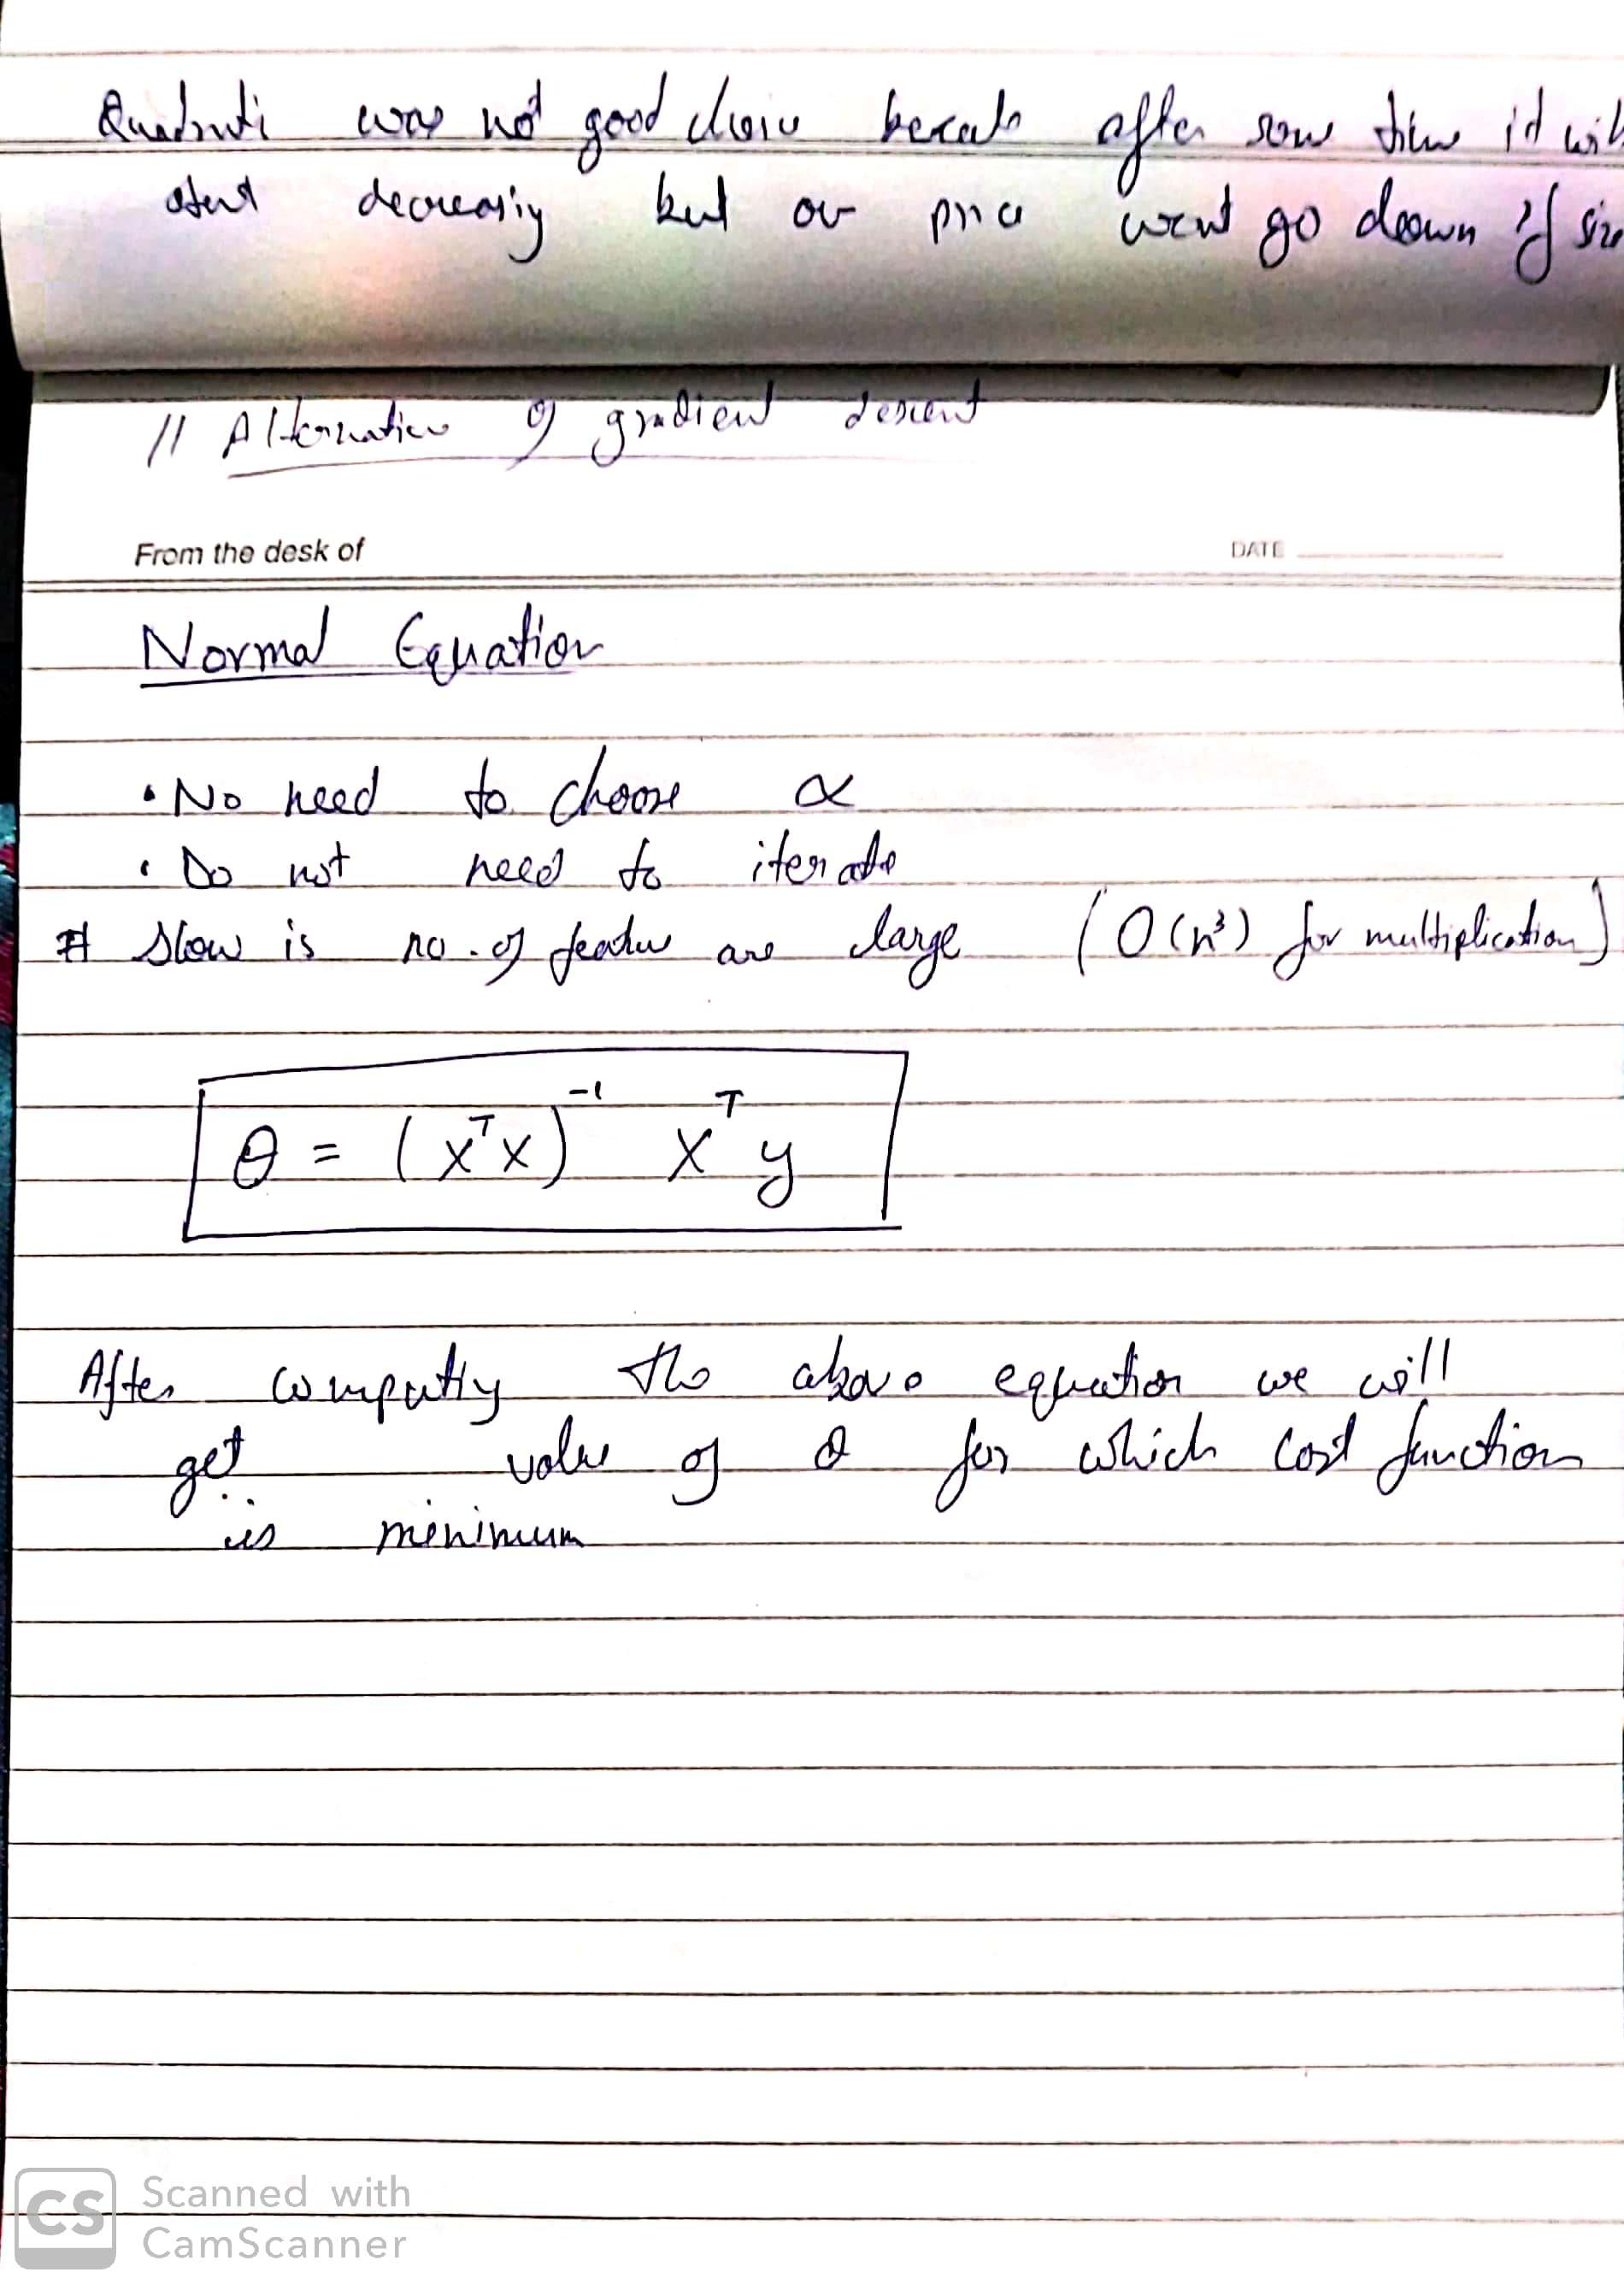 Quadrati was not good choice becaus after some time it will
start decreasig but our price wont go down if size
// Alternative of gradient descent
From the desk of
DATE
Normal Equation
• No need to choose α
• Do not need to iterate
# Slow is no. of featue are large (O(n³) for multiplication)
θ = (XᵀX)⁻¹ Xᵀy
After computig the above equation we will
get value of θ for which cost function
is minimum
CS
Scanned with
CamScanner